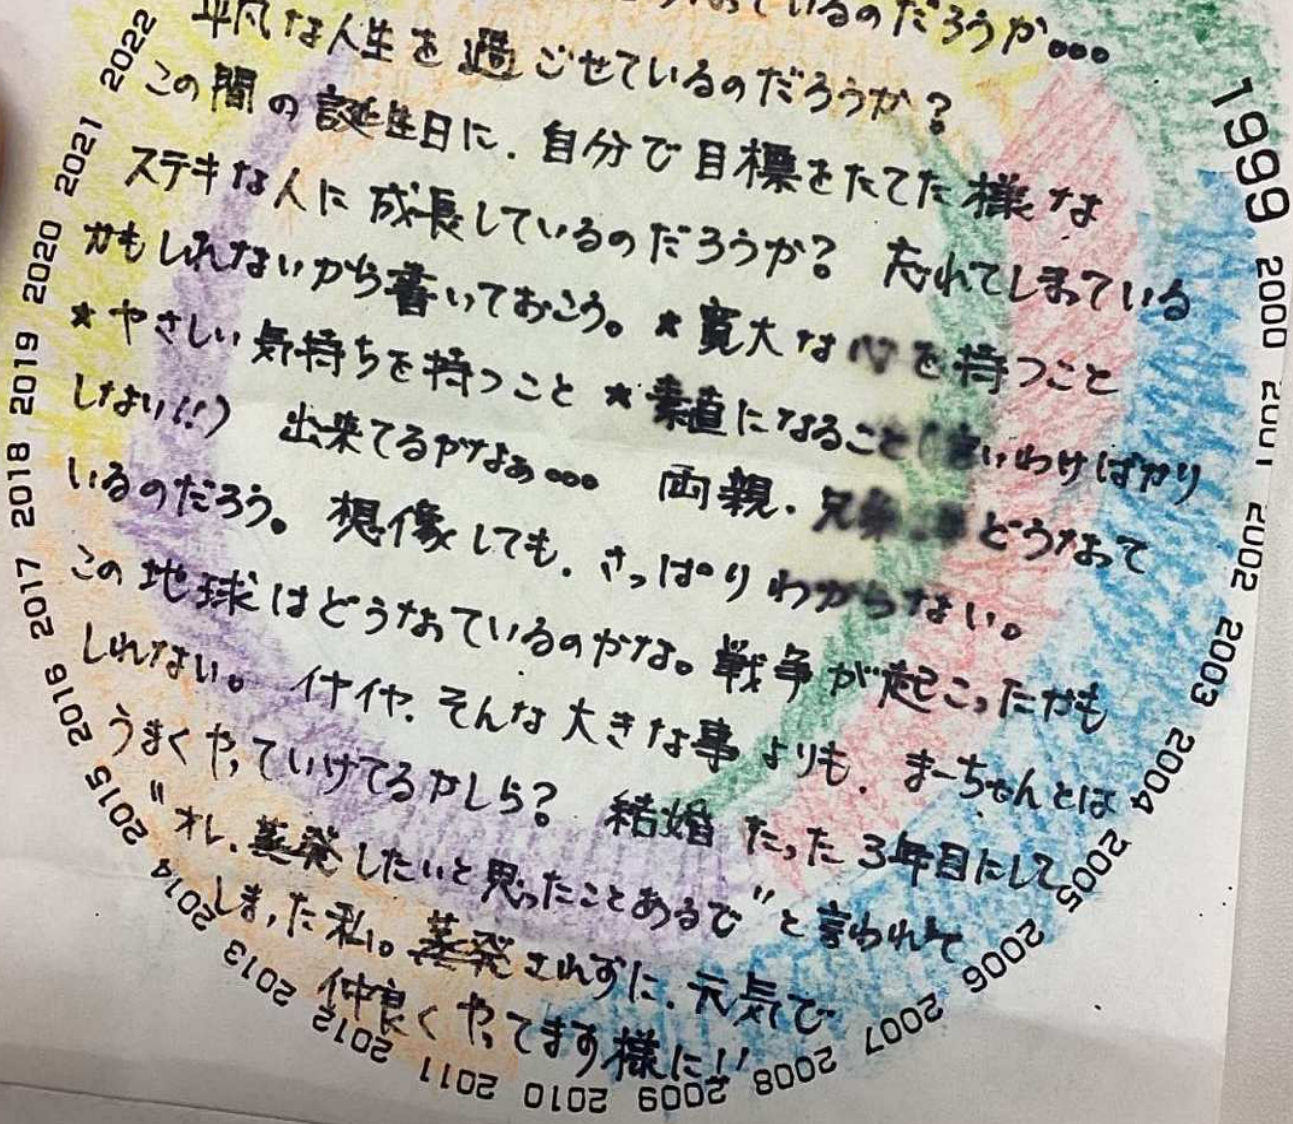 ているのだろうか…
平凡な人生を過ごせているのだろうか?
この間の誕生日に、自分で目標をたてた様な
ステキな人に成長しているのだろうか? 忘れてしまっている
かもしれないから書いておこう。★寛大な心を持つこと
★やさしい気持ちを持つこと ★素直になること(言いわけばかり
しない!!) 出来てるかなぁ… 両親、兄弟 どうなって
いるのだろう。想像しても、さっぱりわからない。
この地球はどうなっているのかな。戦争が起こったかも
しれない。イヤイヤ、そんな大きな事よりも、まーちゃんとは
うまくやっていけてるかしら? 結婚たった3年目にして、
"オレ、蒸発したいと思ったことあるで"と言われて
しまった私。蒸発されずに、元気で
仲良くやってます様に!!
1999 2000 2001 2002 2003 2004 2005 2006 2007 2008 2009 2010 2011 2012 2013 2014 2015 2016 2017 2018 2019 2020 2021 2022